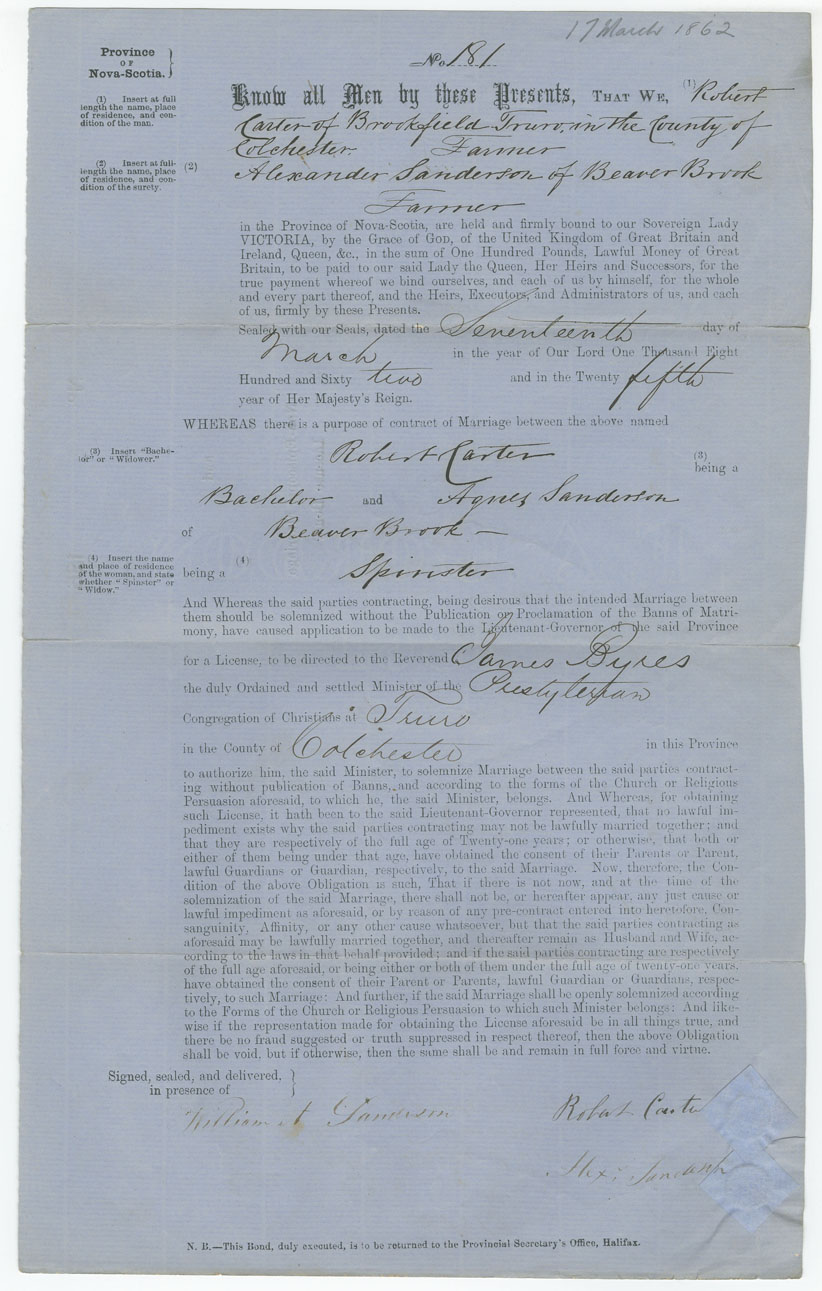 17 March 1862
Province
OF
Nova-Scotia.
No. 181
(1) Insert at full length the name, place of residence, and condition of the man.
Know all Men by these Presents, THAT WE, (1) Robert
Carter of Brookfield Truro, in the County of
Colchester Farmer
(2) Insert at full-length the name, place of residence, and condition of the surety.
(2) Alexander Sanderson of Beaver Brook
Farmer
in the Province of Nova-Scotia, are held and firmly bound to our Sovereign Lady
VICTORIA, by the Grace of GOD, of the United Kingdom of Great Britain and
Ireland, Queen, &c., in the sum of One Hundred Pounds, Lawful Money of Great
Britain, to be paid to our said Lady the Queen, Her Heirs and Successors, for the
true payment whereof we bind ourselves, and each of us by himself, for the whole
and every part thereof, and the Heirs, Executors, and Administrators of us, and each
of us, firmly by these Presents.
Sealed with our Seals, dated the Seventeenth day of
March in the year of Our Lord One Thousand Eight
Hundred and Sixty two and in the Twenty fifth
year of Her Majesty's Reign.
WHEREAS there is a purpose of contract of Marriage between the above named
(3) Insert "Bachelor" or "Widower."
Robert Carter (3) being a
Bachelor and Agnes Sanderson
of Beaver Brook —
(4) Insert the name and place of residence of the woman, and state whether "Spinster" or "Widow."
being a (4) Spinster
And Whereas the said parties contracting, being desirous that the intended Marriage between
them should be solemnized without the Publication or Proclamation of the Banns of Matri-
mony, have caused application to be made to the Lieutenant-Governor of the said Province
for a License, to be directed to the Reverend James Byres
the duly Ordained and settled Minister of the Presbyterian
Congregation of Christians at Truro
in the County of Colchester in this Province
to authorize him, the said Minister, to solemnize Marriage between the said parties contract-
ing without publication of Banns, and according to the forms of the Church or Religious
Persuasion aforesaid, to which he, the said Minister, belongs. And Whereas, for obtaining
such License, it hath been to the said Lieutenant-Governor represented, that no lawful im-
pediment exists why the said parties contracting may not be lawfully married together; and
that they are respectively of the full age of Twenty-one years; or otherwise, that both or
either of them being under that age, have obtained the consent of their Parents or Parent,
lawful Guardians or Guardian, respectively, to the said Marriage. Now, therefore, the Con-
dition of the above Obligation is such, That if there is not now, and at the time of the
solemnization of the said Marriage, there shall not be, or hereafter appear, any just cause or
lawful impediment as aforesaid, or by reason of any pre-contract entered into heretofore, Con-
sanguinity, Affinity, or any other cause whatsoever, but that the said parties contracting as
aforesaid may be lawfully married together, and thereafter remain as Husband and Wife, ac-
cording to the laws in that behalf provided; and if the said parties contracting are respectively
of the full age aforesaid, or being either or both of them under the full age of twenty-one years,
have obtained the consent of their Parent or Parents, lawful Guardian or Guardians, respec-
tively, to such Marriage: And further, if the said Marriage shall be openly solemnized according
to the Forms of the Church or Religious Persuasion to which such Minister belongs: And like-
wise if the representation made for obtaining the License aforesaid be in all things true, and
there be no fraud suggested or truth suppressed in respect thereof, then the above Obligation
shall be void, but if otherwise, then the same shall be and remain in full force and virtue.
Signed, sealed, and delivered,
in presence of
William A Sanderson
Robert Carter
Alex:
N. B.—This Bond, duly executed, is to be returned to the Provincial Secretary's Office, Halifax.